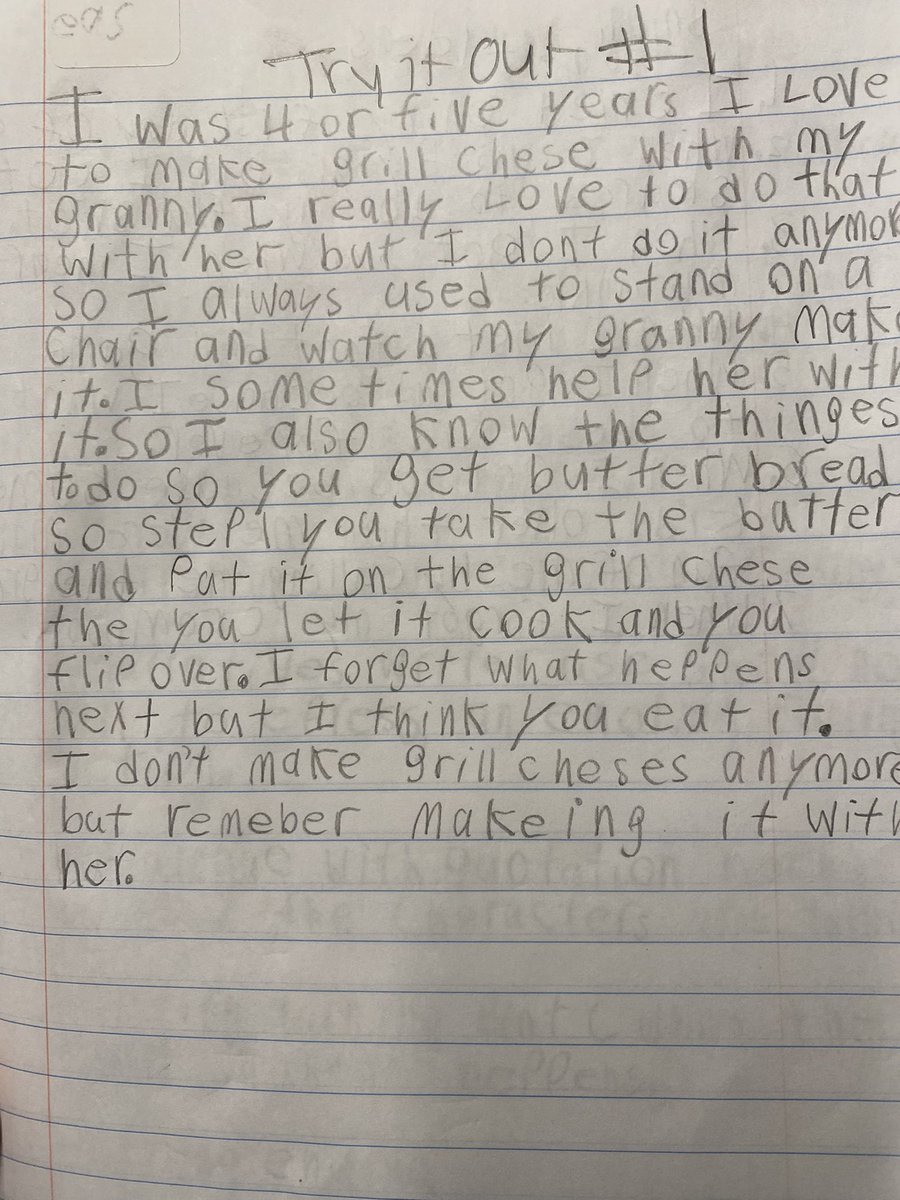 Try it out #1
I was 4 or five years I Love
to make grill chese with my
granny. I really Love to do that
with her but I dont do it anymor
so I always used to stand on a
Chair and watch my granny mak
it. I some times help her with
it. So I also know the thinges
to do so you get butter bread
so step 1 you take the butter
and Put it on the grill chese
the you let it cook and you
flip over. I forget what heppens
next but I think you eat it.
I don't make grill cheses anymore
but remeber makeing it with
her.